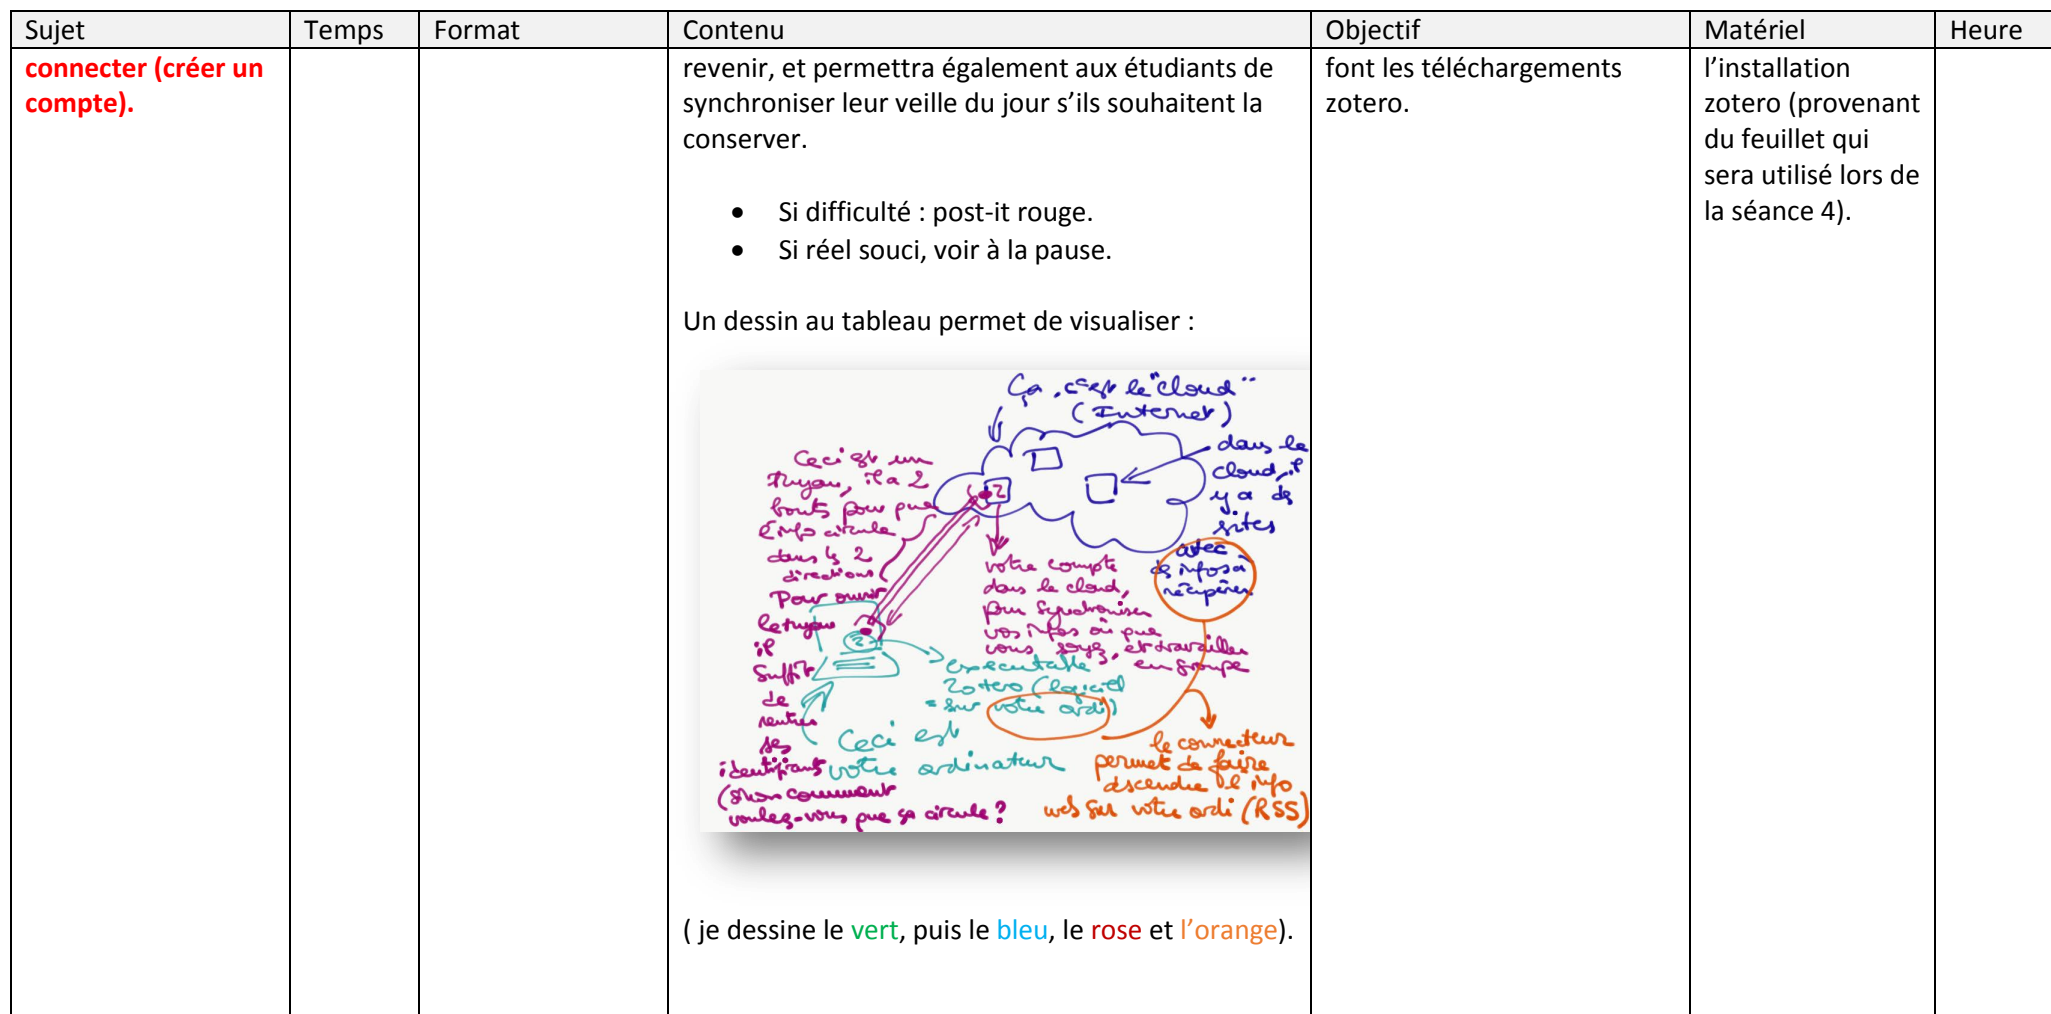 Sujet
Temps
Format
Contenu
Objectif
Matériel
Heure
connecter (créer un
compte).
revenir, et permettra également aux étudiants de
synchroniser leur veille du jour s’ils souhaitent la
conserver.
• Si difficulté : post-it rouge.
• Si réel souci, voir à la pause.
Un dessin au tableau permet de visualiser :
Ça, c'est le "cloud"
(Internet)
dans le
cloud, il
y a des
sites
avec
des infos à
récupérer
Ceci est un
tuyau, il a 2
bouts pour que
l'info circule
dans les 2
directions
Pour ouvrir
le tuyau
il
suffit
de
rentrer
ses
identifiants
(sinon comment
voulez-vous que ça circule ?
votre compte
dans le cloud,
pour synchroniser
vos infos où que
vous soyez, et travailler
en groupe
executable
Zotero (logiciel
= sur votre ordi)
Ceci est
votre ordinateur
le connecteur
permet de faire
descendre l'info
web sur votre ordi (RSS)
( je dessine le vert, puis le bleu, le rose et l’orange).
font les téléchargements
zotero.
l’installation
zotero (provenant
du feuillet qui
sera utilisé lors de
la séance 4).